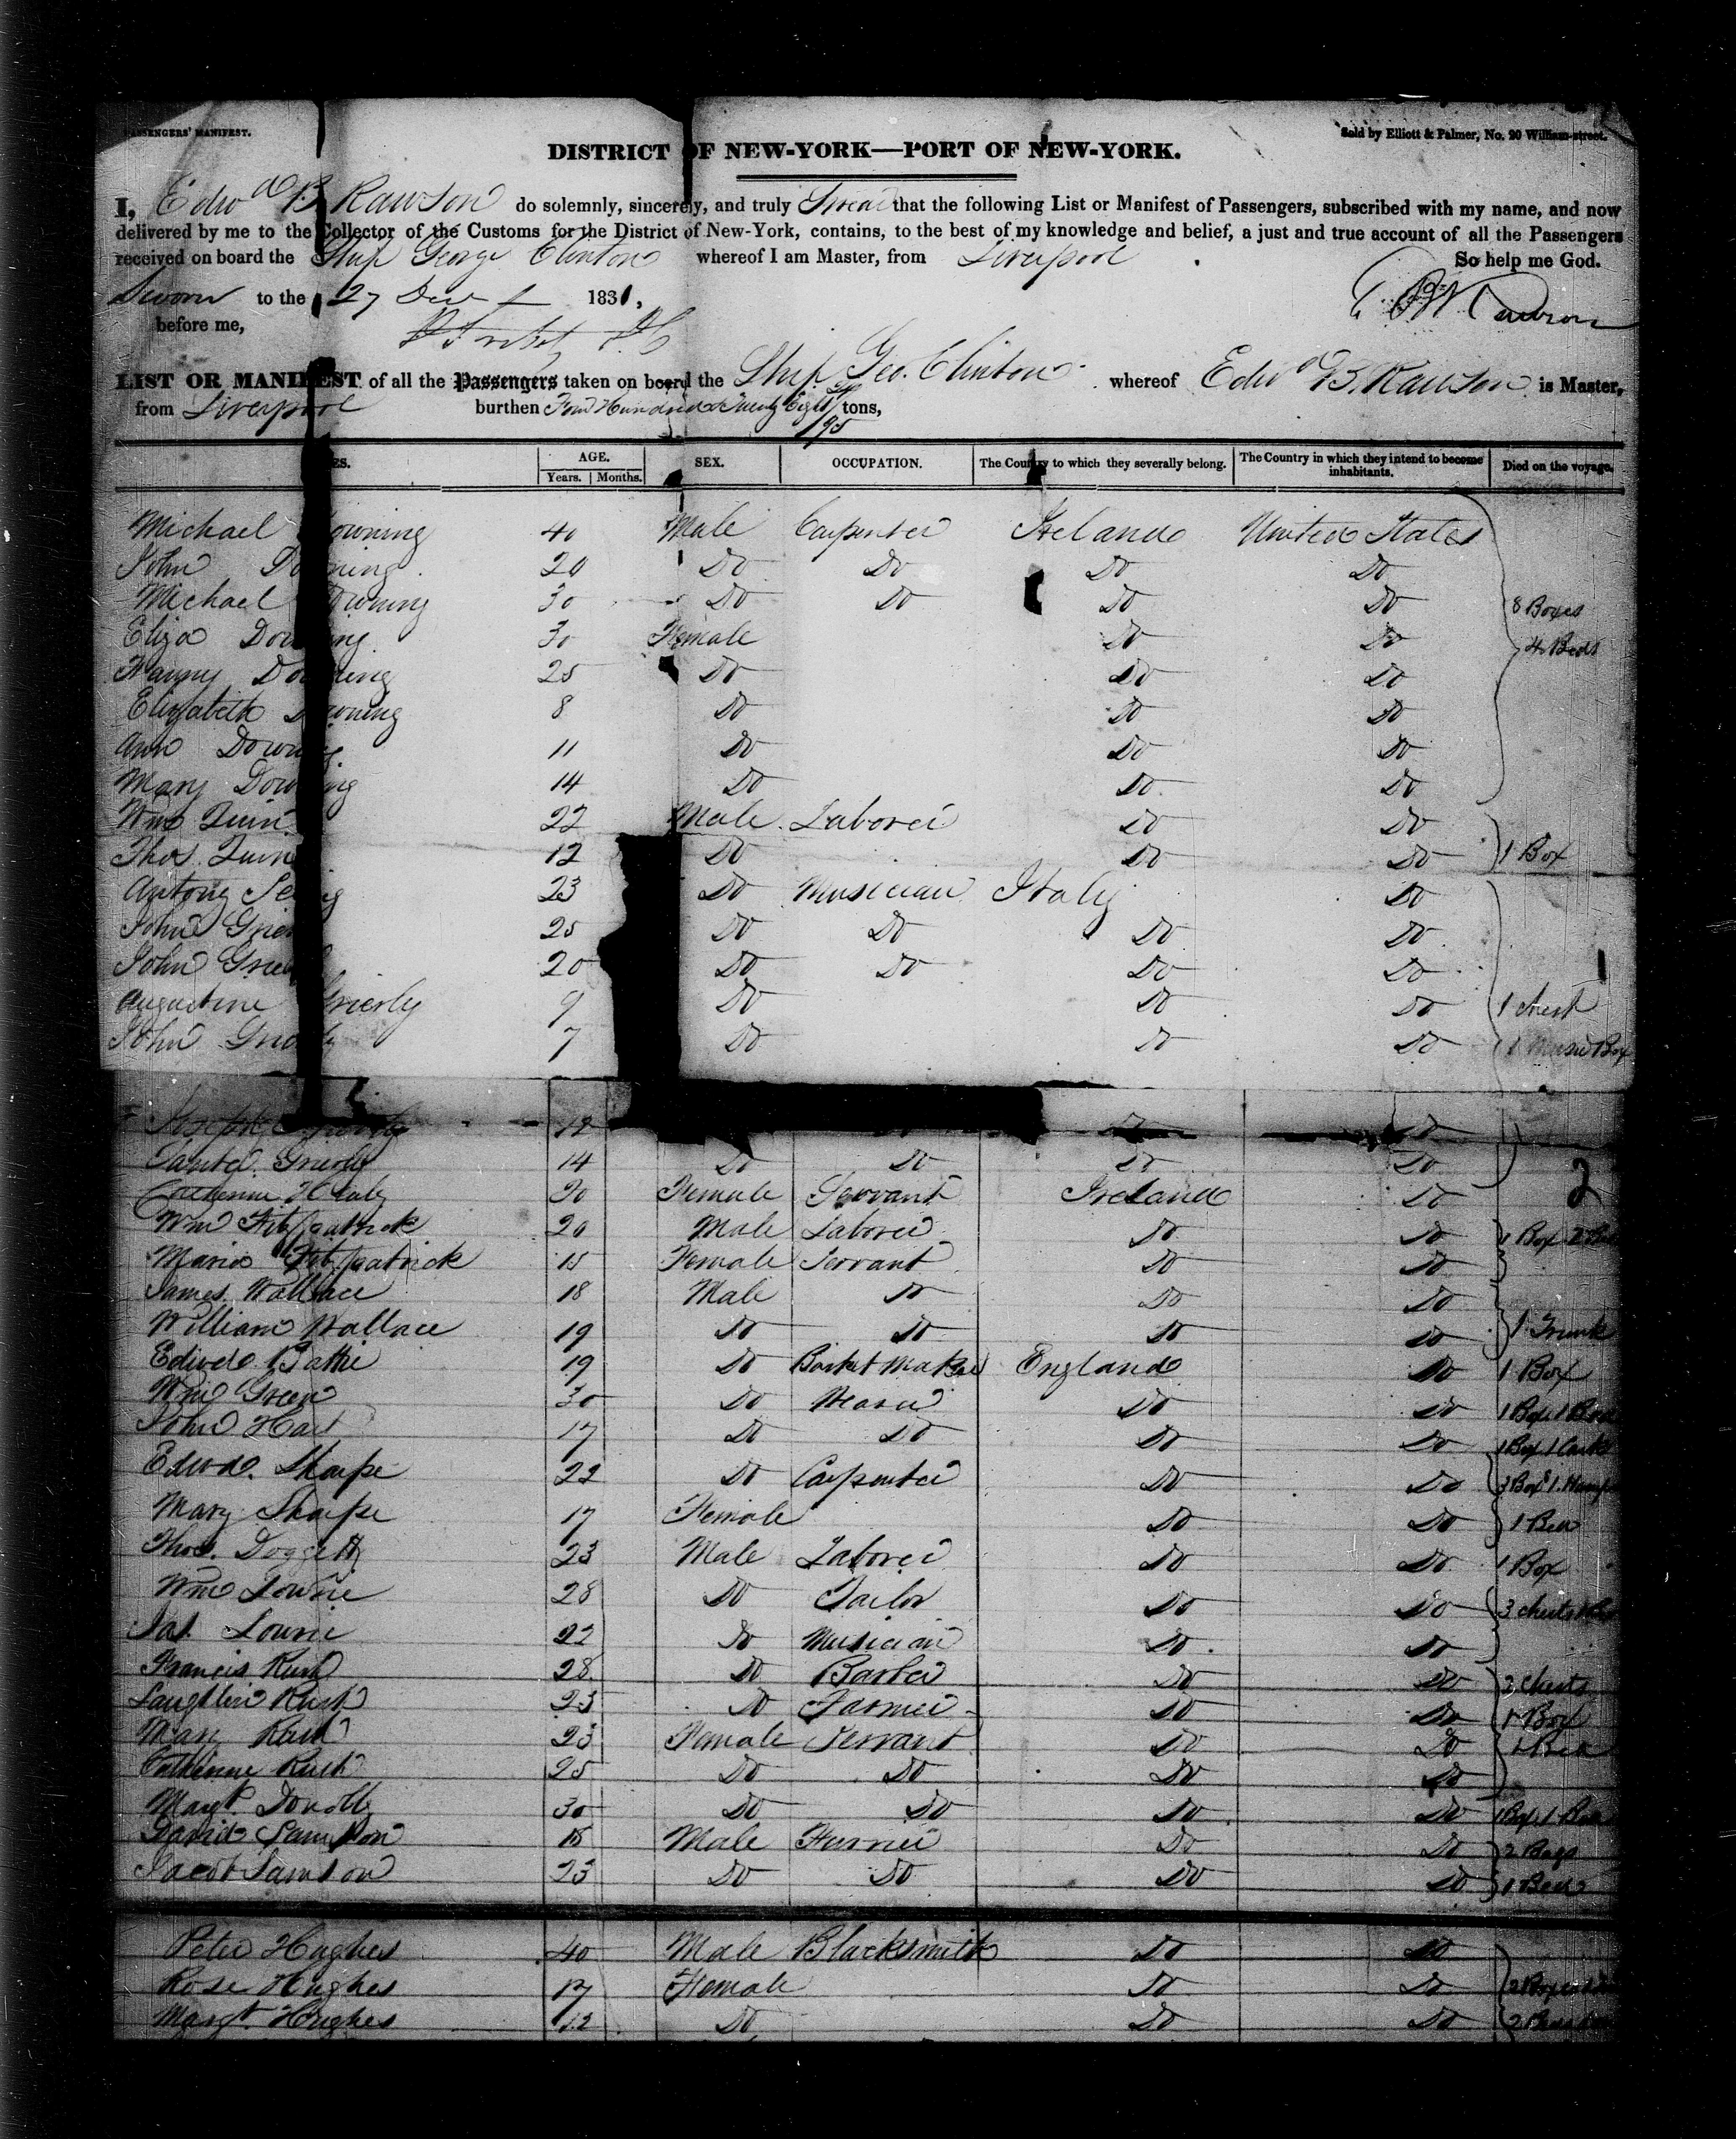 PASSENGERS' MANIFEST.
Sold by Elliott & Palmer, No. 20 William-street.
DISTRICT OF NEW-YORK—PORT OF NEW-YORK.
I, Edwd B. Rawson do solemnly, sincerely, and truly Swear that the following List or Manifest of Passengers, subscribed with my name, and now
delivered by me to the Collector of the Customs for the District of New-York, contains, to the best of my knowledge and belief, a just and true account of all the Passengers
received on board the Ship George Clinton whereof I am Master, from Liverpool
So help me God.
Sworn to the 27 Decr 1831,
before me,
E B Rawson
LIST OR MANIFEST of all the Passengers taken on board the Ship Geo. Clinton whereof Edwd B. Rawson is Master,
from Liverpool burthen Four Hundred & Twenty Eight tons,
95
ES. AGE. SEX. OCCUPATION. The Country to which they severally belong. The Country in which they intend to become inhabitants. Died on the voyage.
Years. Months.
Michael owning 40 Male Carpenter Ireland United States
John Downing 20 Do Do Do Do
Michael owning 30 Do Do Do Do 8 Boxes
Eliza Downing 30 Female Do Do 4 Beds
Fanny Downing 25 Do Do Do
Elizabeth Downing 8 Do Do Do
Ann Downing 11 Do Do Do
Mary Downing 14 Do Do Do
Wm Quin 22 Male Laborer Do Do
Thos. Quin 12 Do Do Do 1 Box
Antony 23 Do Musician Italy Do
John 25 Do Do Do Do
John 20 Do Do Do Do
Augustine rierly 9 Do Do Do 1 Chest
John 7 Do Do Do 1 Music Box
Joseph 12 Do
14 Do Do Do Do 2
Catherine Healy 20 Female Servant Ireland Do
Wm Fitzpatrick 20 Male Laborer Do Do 1 Box 2
Maria Fitzpatrick 15 Female Servant Do Do
James Wallace 18 Male Do Do Do
William Wallace 19 Do Do Do Do 1 Trunk
Edwd. Battie 19 Do Basket Maker England Do 1 Box
Wm Green 30 Do Mason Do Do 1 Box 1
John Hart 17 Do Do Do Do 1 Box 1 Cask
Edwd. Sharpe 22 Do Carpenter Do Do 3 Boxs 1
Mary Sharpe 17 Female Do Do 1 Bed
Thos. Doggett 23 Male Laborer Do Do 1 Box
Wm Lowrie 28 Do Tailor Do Do 3 chests
Jas. Lowrie 22 Do Musician Do Do
Francis Rush 28 Do Barber Do Do 2 chests
Laughlin Rush 23 Do Farmer Do Do 1 Box
Mary Rush 23 Female Servant Do Do 1 Bed
Catherine Rush 25 Do Do Do Do
Margt. Donolly 30 Do Do Do Do 1 Box 1
David Samson 18 Male Furrier Do Do 2 Bags
Jacob Samson 23 Do Do Do Do 1 Bed
Peter Hughes 40 Male Blacksmith Do Do
Rose Hughes 17 Female Do Do 2
Margt. Hughes 12 Do Do Do 2